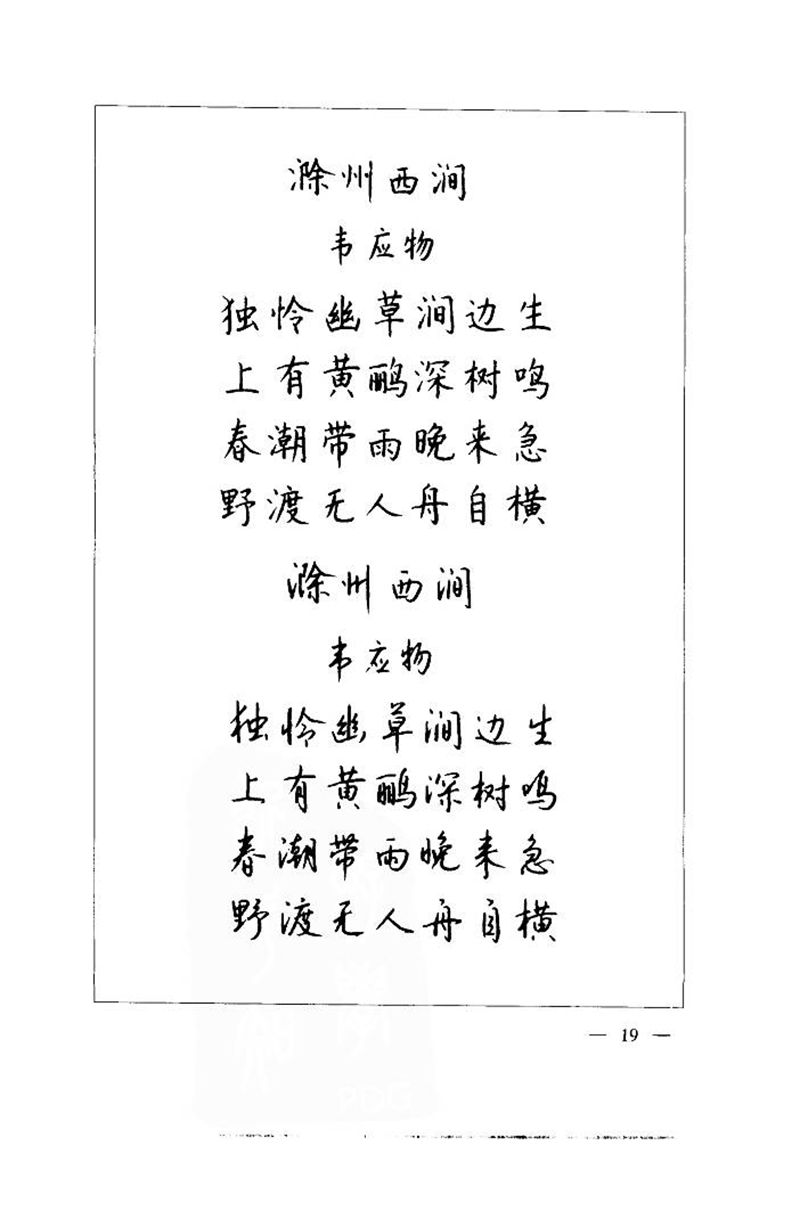 滁州西涧
韦应物
独怜幽草涧边生
上有黄鹂深树鸣
春潮带雨晚来急
野渡无人舟自横
滁州西涧
韦应物
独怜幽草涧边生
上有黄鹂深树鸣
春潮带雨晚来急
野渡无人舟自横
— 19 —
PDG